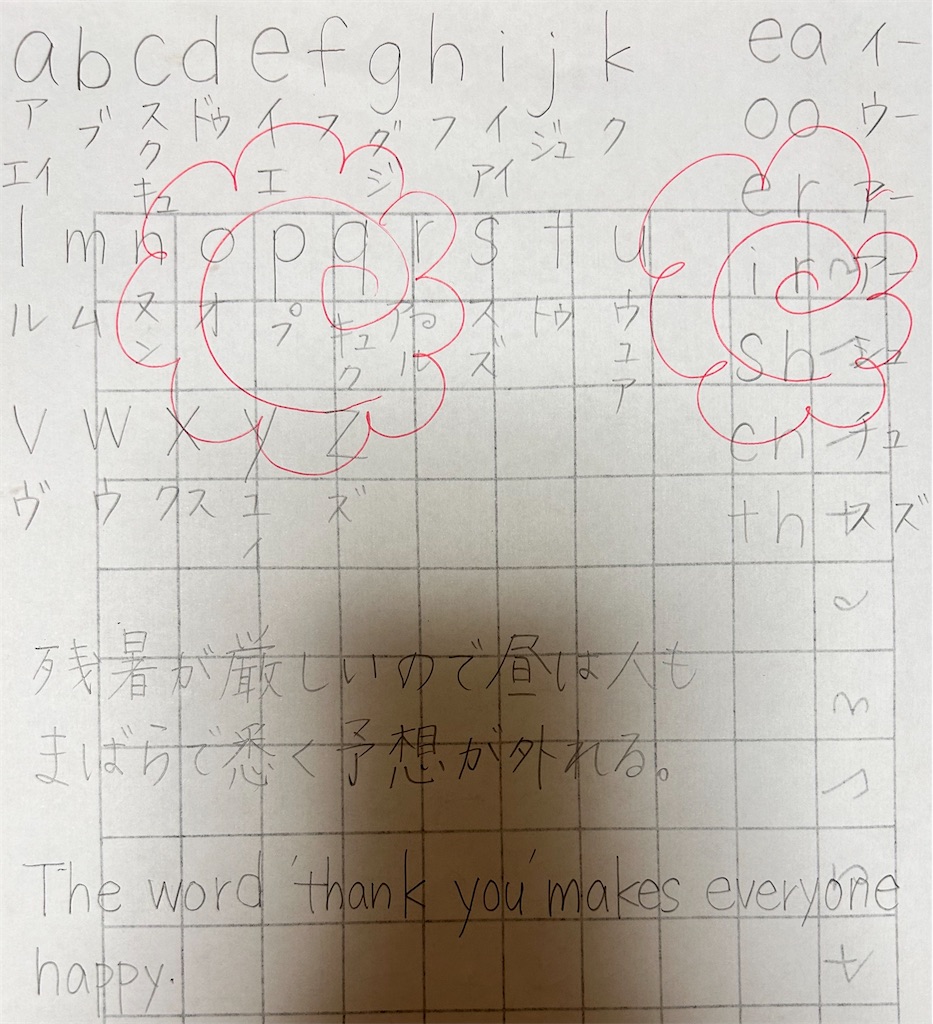 a b c d e f g h i j k
ア ブ スク ドゥ イ フ グ フ イ ジュ ク
エイ キュ エ ジ アイ
l m n o p q r s t u
ル ム ヌン オ プ キュク アール スズ トゥ ウュア
v w x y z
ヴ ウ クス ユイ ズ
ea イー
oo ウー
er アー
ir アー
sh シュ
ch チュ
th ス ズ
残暑が厳しいので昼は人も
まばらで悉く予想が外れる。
The word 'thank you' makes everyone
happy.